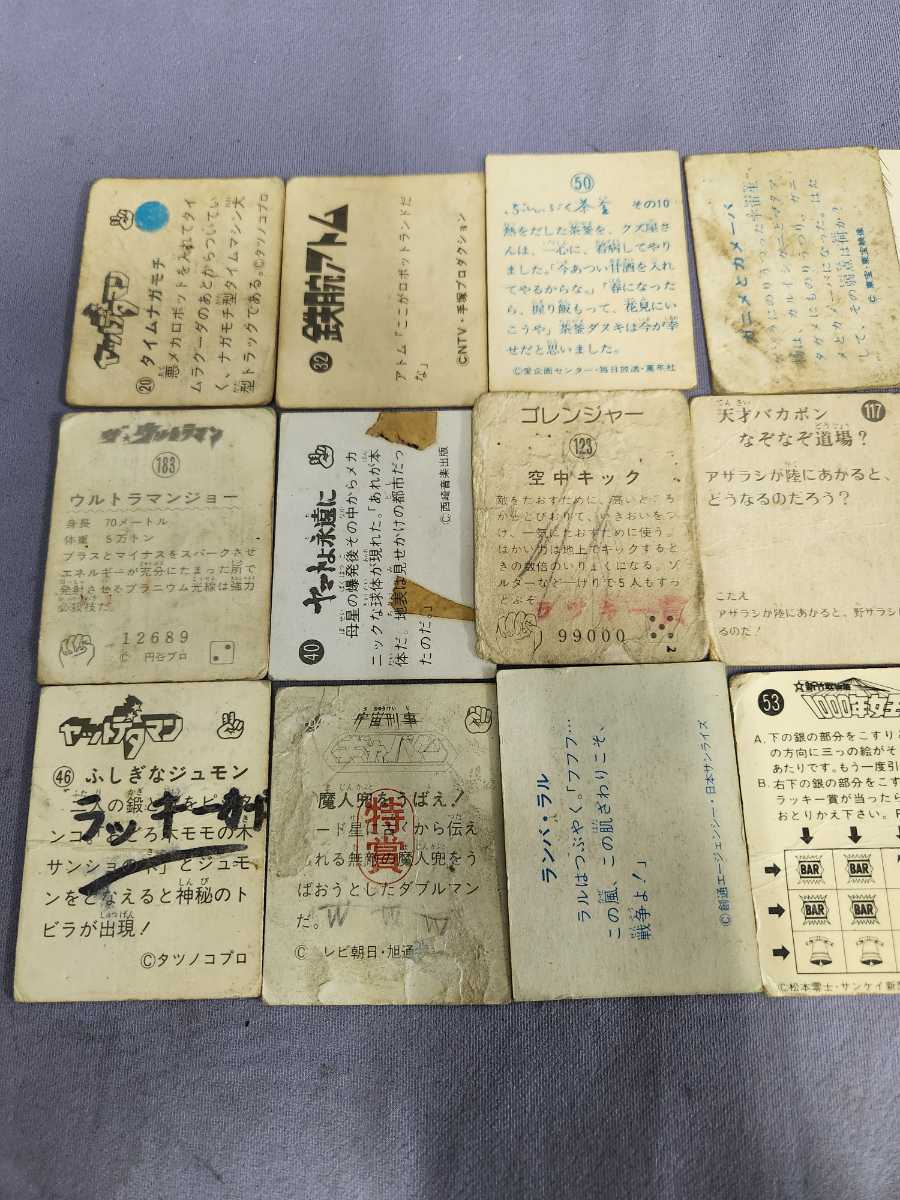 ヤットデタマン
⑳ タイムナガモチ
悪メカロボットを入れてタイ
ムラグーダのあとからついてい
く、ナガモチ型タイムマシン大
型トラックである。©タツノコプロ
鉄腕アトム
㉜
アトム「ここがロボットランドだ
な」
©NTV・手塚プロダクション
㊿
ぶんぶく茶釜 その10
熱をだした茶釜を、クズ屋さ
んは、一心に、看病してやり
ました。「今あつい甘酒を入れ
てやるからな。」「春になった
ら、握り飯もって、花見にい
こうや」茶釜ダヌキは今が幸
せだと思いました。
©愛企画センター・毎日放送・萬年社
ガニメとカメーバ
©東宝・東宝映像
ザ★ウルトラマン
183
ウルトラマンジョー
身長 70メートル
体重 5万トン
プラスとマイナスをスパークさせ
エネルギーが充分にたまった肌で
発射させるプラニウム光線は強力
な必殺技だ。
12689
© 円谷プロ
ヤマトよ永遠に
㊵
母星の爆発後その中からメカ
ニックな球体が現れた。「あれが本
体だ。地表は見せかけの都市だっ
たのだ。」
©西崎音楽出版
ゴレンジャー
123
空中キック
敵をたおすために、高いところ
からとびおりて、いきおいをつ
け、一気にたおすために使う。
はかい力は地上でキックするとき
の数倍のいりょくになる。ゾ
ルダーなど一けりで5人もすっ
とぶぞ。
ラッキー賞
99000
2
天才バカボン
117
なぞなぞ道場?
アザラシが陸にあがると、
どうなるのだろう?
こたえ
アザラシが陸にあがると、野ザラシ
るのだ!
ヤットデタマン
㊻ ふしぎなジュモン
サンショの木」とジュモ
ンをとなえると神秘のト
ビラが出現!
©タツノコプロ
宇宙刑事
ギャバン
魔人兜をうばえ!
ード星に古くから伝え
られる無敵の魔人兜をう
ばおうとしたダブルマン
だ。
特賞
W W W
© レビ朝日・旭通
ランバ・ラル
ラルはつぶやく。「フフフ…
この風、この肌ざわりこそ、
戦争よ!」
©創通エージェンシー・日本サンライズ
53
☆新竹取物語
1000年女王
A. 下の銀の部分をこすり
の方向に三つの絵がそ
あたりです。もう一度引
B. 右下の銀の部分をこす
ラッキー賞が当ったら
おとりかえ下さい。
BAR BAR
BAR BAR
©松本零士・サンケイ新